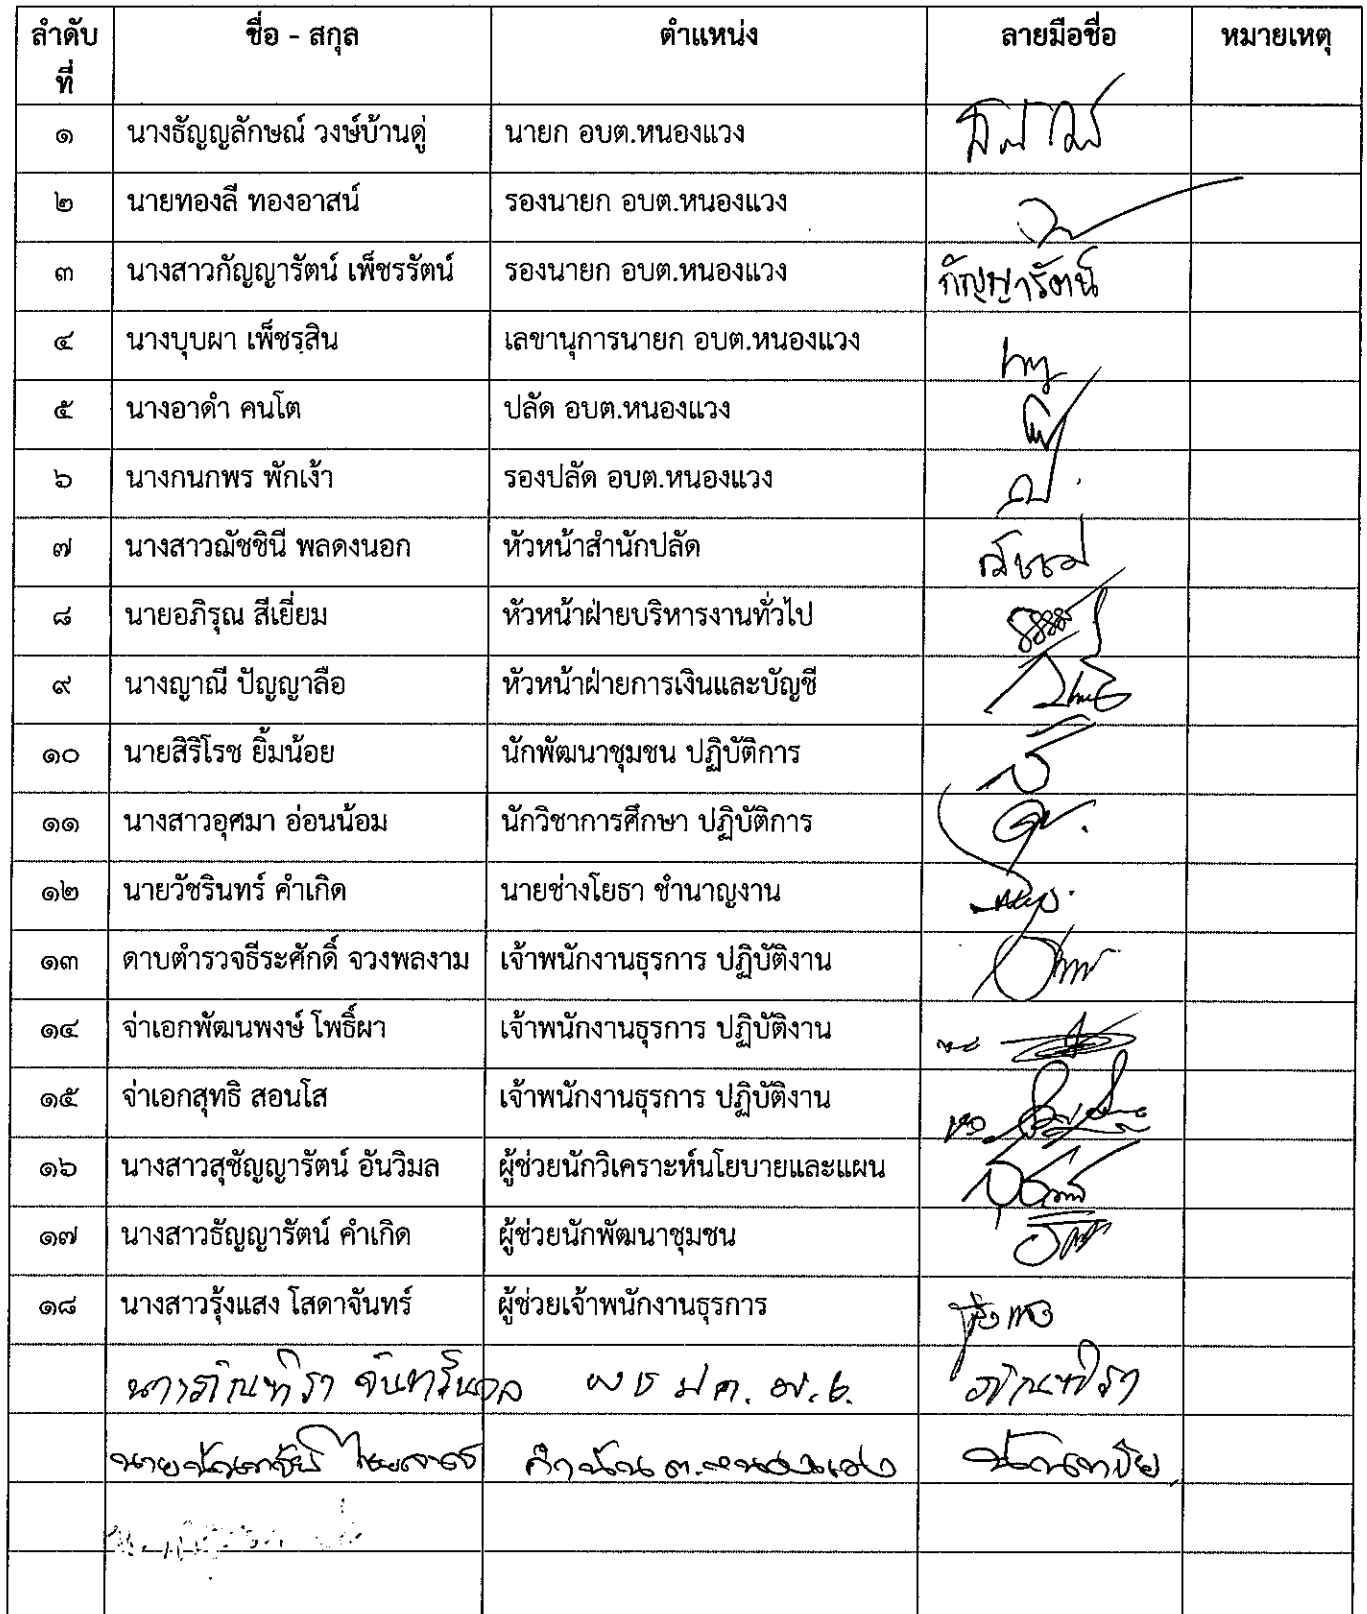 ลำดับที่ ชื่อ - สกุล ตำแหน่ง ลายมือชื่อ หมายเหตุ
๑ นางธัญญลักษณ์ วงษ์บ้านดู่ นายก อบต.หนองแวง
๒ นายทองลี ทองอาสน์ รองนายก อบต.หนองแวง
๓ นางสาวกัญญารัตน์ เพ็ชรรัตน์ รองนายก อบต.หนองแวง กัญญารัตน์
๔ นางบุบผา เพ็ชรสิน เลขานุการนายก อบต.หนองแวง
๕ นางอาดำ คนโต ปลัด อบต.หนองแวง
๖ นางกนกพร พักเง้า รองปลัด อบต.หนองแวง
๗ นางสาวฌัชชินี พลดงนอก หัวหน้าสำนักปลัด
๘ นายอภิรุณ สีเยี่ยม หัวหน้าฝ่ายบริหารงานทั่วไป
๙ นางญาณี ปัญญาลือ หัวหน้าฝ่ายการเงินและบัญชี
๑๐ นายสิริโรช ยิ้มน้อย นักพัฒนาชุมชน ปฏิบัติการ
๑๑ นางสาวอุศมา อ่อนน้อม นักวิชาการศึกษา ปฏิบัติการ
๑๒ นายวัชรินทร์ คำเกิด นายช่างโยธา ชำนาญงาน
๑๓ ดาบตำรวจธีระศักดิ์ จวงพลงาม เจ้าพนักงานธุรการ ปฏิบัติงาน
๑๔ จ่าเอกพัฒนพงษ์ โพธิ์ผา เจ้าพนักงานธุรการ ปฏิบัติงาน
๑๕ จ่าเอกสุทธิ สอนโส เจ้าพนักงานธุรการ ปฏิบัติงาน
๑๖ นางสาวสุชัญญารัตน์ อันวิมล ผู้ช่วยนักวิเคราะห์นโยบายและแผน
๑๗ นางสาวธัญญารัตน์ คำเกิด ผู้ช่วยนักพัฒนาชุมชน
๑๘ นางสาวรุ้งแสง โสดาจันทร์ ผู้ช่วยเจ้าพนักงานธุรการ รุ้งแสง
กำนัน ต.หนองแวง